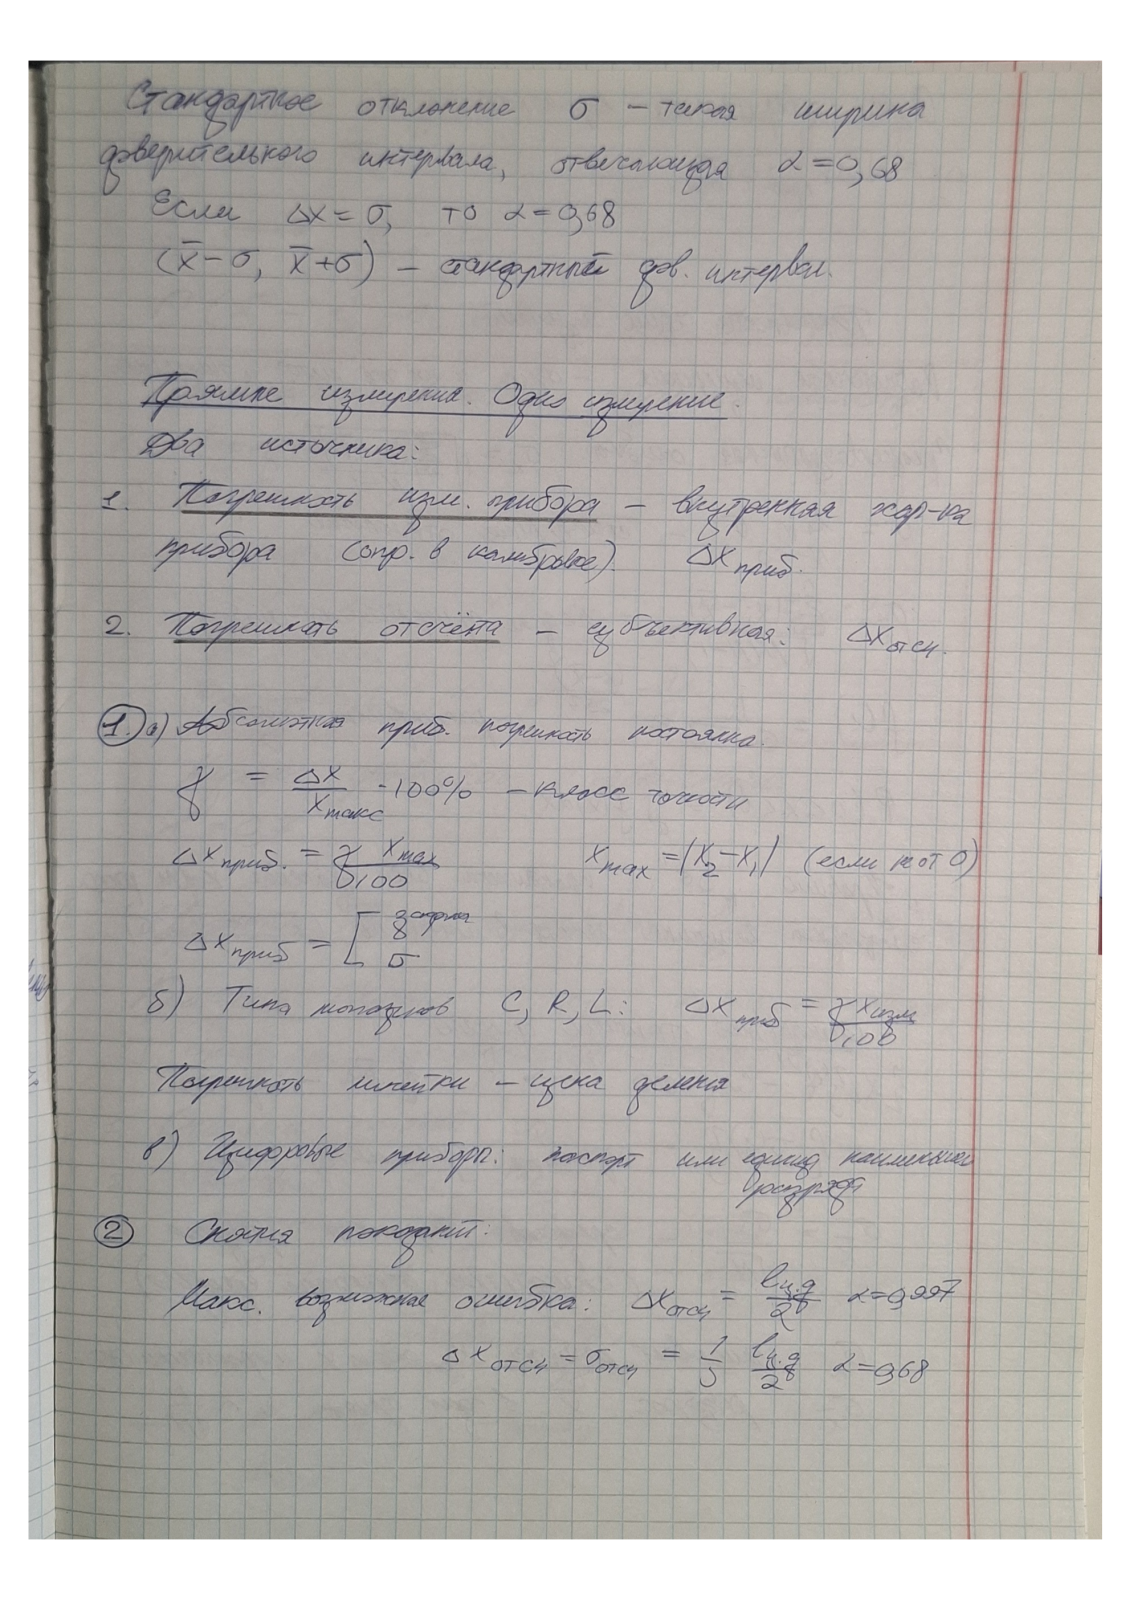 Стандартное отклонение σ – такая ширина
доверительного интервала, отвечающая α=0,68
Если Δx=σ, то α=0,68
(x̅-σ, x̅+σ) – стандартный дов. интервал.
Прямые измерения. Одно измерение.
Два источника:
1. Погрешность изм. прибора – внутренняя хар-ка
прибора (опр. в калибровке). Δx приб.
2. Погрешность отсчёта – субъективная: Δx отсч.
1. а) Абсолютная приб. погрешность постоянна.
γ = Δx / x макс · 100% – класс точности
Δx приб. = γ x max / 100 x max = |x₂-x₁| (если не от 0)
Δx приб = [
σ
б) Типа магазинов C, R, L: Δx приб = γ x изм / 100
Погрешность линейки – цена деления
в) Цифровые приборы: паспорт или единица наименьшего
разряда
2 Снятия показаний:
Макс. возможная ошибка: Δx отсч = l ц.д / 2 α=0,997
Δx отсч = σ отсч = 1/3 l ц.д / 2 α=0,68